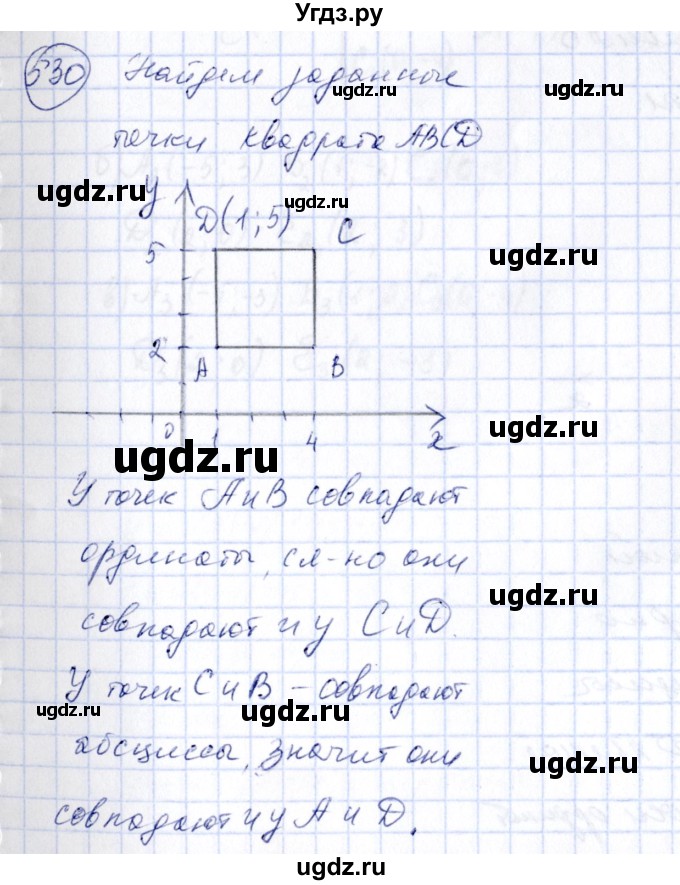 Угдз.ру
530 Найдем заданные
ugdz.ru
точки квадрата ABCD
ugdz.ru
ugdz.ru
ugdz.ru
y
D(1;5) C
5
ugdz.ru
ugdz.ru
2
A B
0 1 4 x
ugdz.ru
ugdz.ru
У точек A и B совпадают
ординаты, сл-но они
ugdz.ru
ugdz.ru
совпадают и у C и D.
У точек C и B - совпадают
ugdz.ru
ugdz.ru
абсциссы, значит они
ugdz.ru
совпадают и у A и D.
ugdz.ru